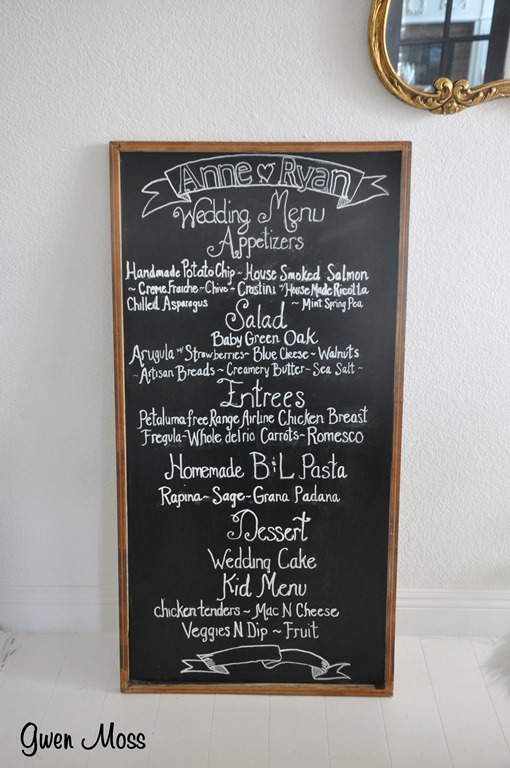 Anne Ryan
Wedding Menu
Appetizers
Handmade Potato Chip ~ House Smoked Salmon
~ Creme Fraiche - Chive ~ Crostini w/ House Made Ricotta
Chilled Asparagus ~ Mint Spring Pea
Salad
Baby Green Oak
Arugula w/ Strawberries ~ Blue Cheese ~ Walnuts
~ Artisan Breads ~ Creamery Butter ~ Sea Salt ~
Entrees
Petaluma free Range Airline Chicken Breast
Fregula ~ Whole del rio Carrots ~ Romesco
Homemade B&L Pasta
Rapina ~ Sage ~ Grana Padana
Dessert
Wedding Cake
Kid Menu
chicken tenders ~ Mac N Cheese
Veggies N Dip ~ Fruit
Gwen Moss